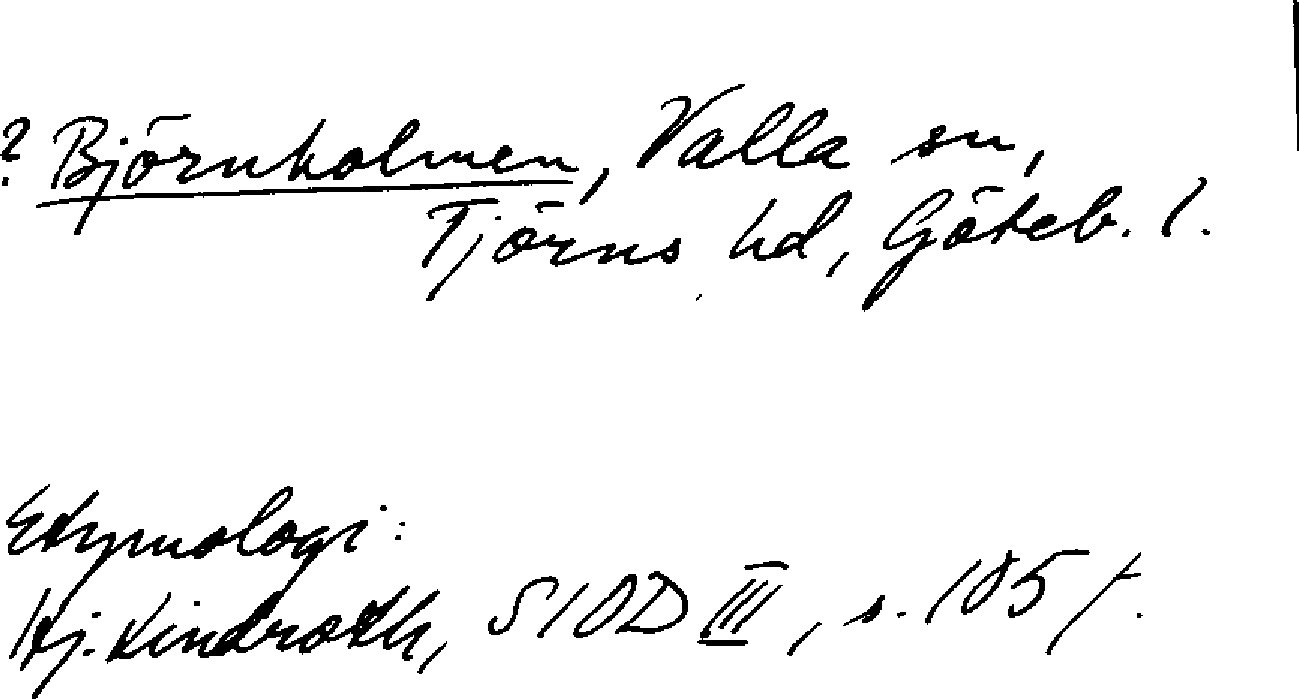 ? Björnholmen, Valla sn,
Tjörns hd, Göteb. l.
Etymologi:
Hj. Lindroth, SIOD III, s. 105 f.